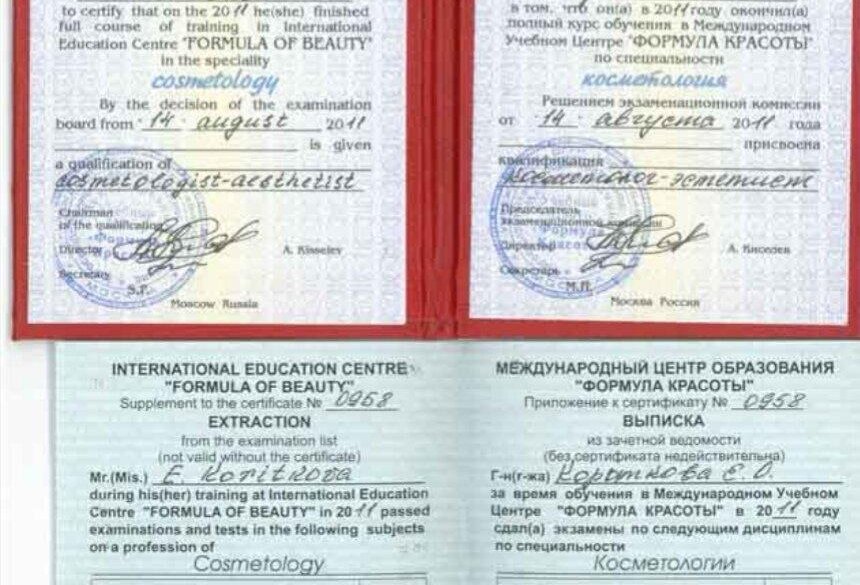 to certify that on the 2011 he(she) finished
full course of training in International
Education Centre "FORMULA OF BEAUTY"
in the speciality
cosmetology
By the decision of the examination
board from "14" august 2011
is given
a qualification of
cosmetologist-aesthetist
Chairman
of the qualification
Director A. Kisselev
Secretary
S.P.
Moscow Russia
в том, что он(а) в 2011 году окончил(а)
полный курс обучения в Международном
Учебном Центре "ФОРМУЛА КРАСОТЫ"
по специальности
косметология
Решением экзаменационной комиссии
от "14" августа 2011 года
присвоена
квалификация
косметолог-эстетист
Председатель
экзаменационной комиссии
Директор А. Киселев
Секретарь
М.П.
Москва Россия
INTERNATIONAL EDUCATION CENTRE
"FORMULA OF BEAUTY"
Supplement to the certificate № 0958
EXTRACTION
from the examination list
(not valid without the certificate)
Mr.(Mis.) E. Koritkova
during his(her) training at International Education
Centre "FORMULA OF BEAUTY" in 2011 passed
examinations and tests in the following subjects
on a profession of
Cosmetology
МЕЖДУНАРОДНЫЙ ЦЕНТР ОБРАЗОВАНИЯ
"ФОРМУЛА КРАСОТЫ"
Приложение к сертификату № 0958
ВЫПИСКА
из зачетной ведомости
(без сертификата недействительна)
Г-н(г-жа) Короткова Е. О.
за время обучения в Международном Учебном
Центре "ФОРМУЛА КРАСОТЫ" в 2011 году
сдал(а) экзамены по следующим дисциплинам
по специальности
Косметологии